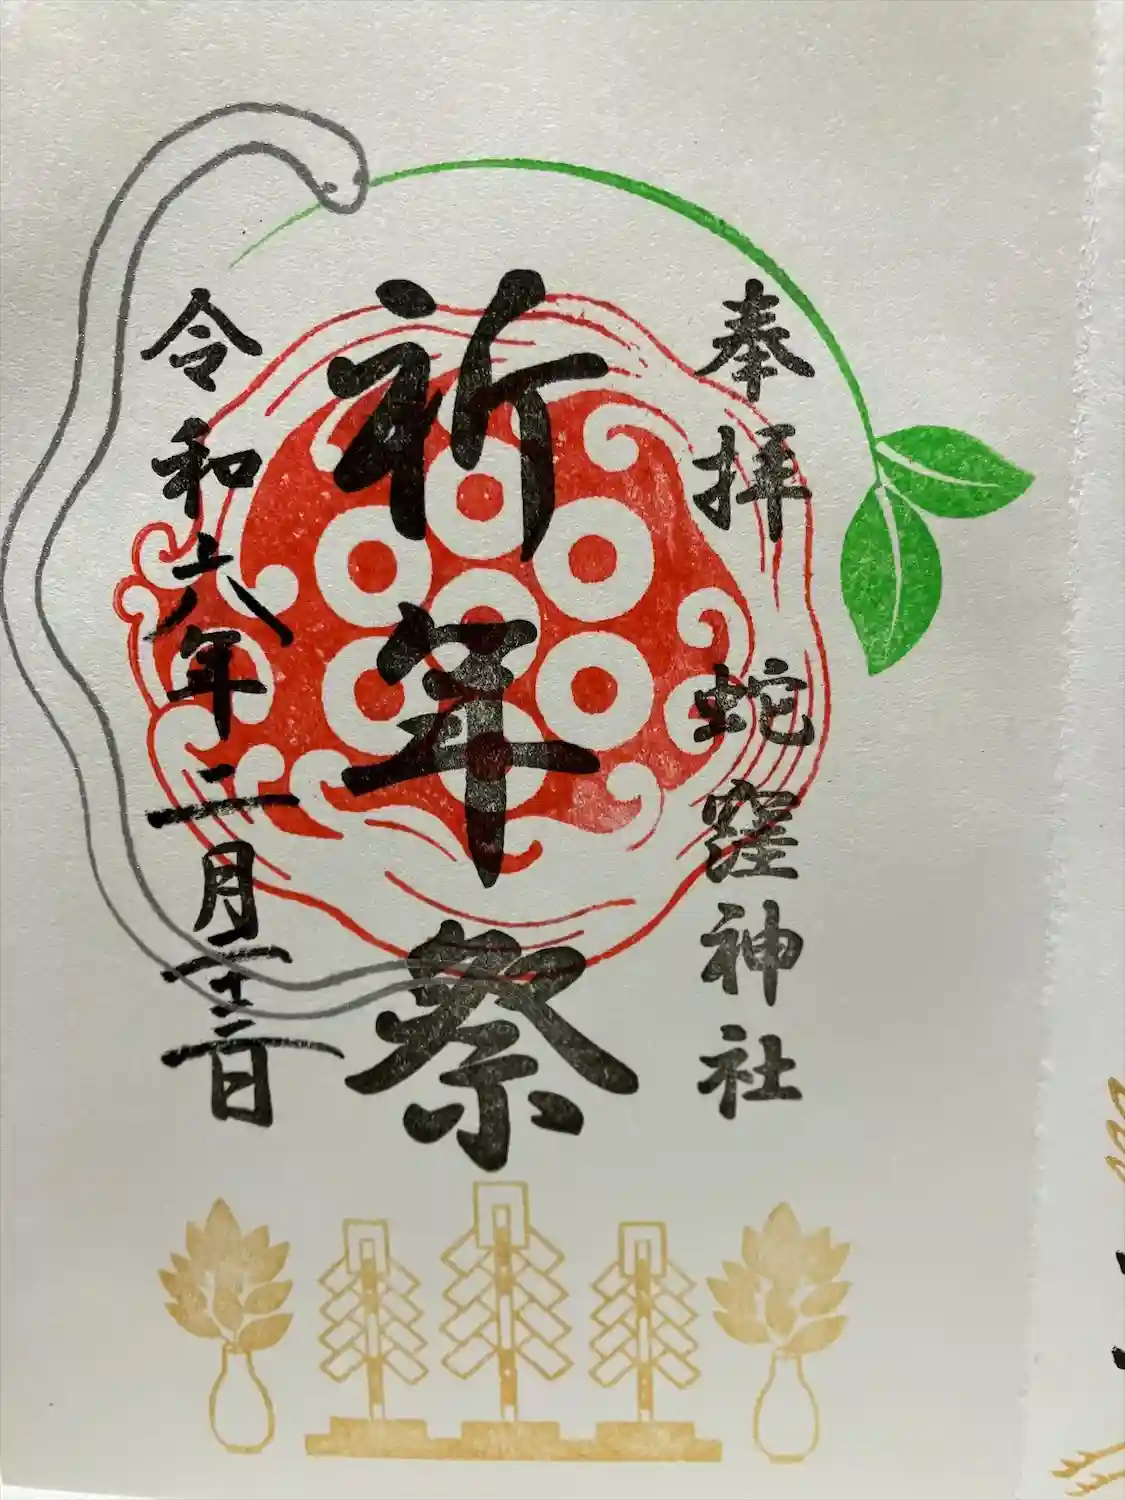 奉拝 蛇窪神社
祈年祭
令和六年二月二十二日